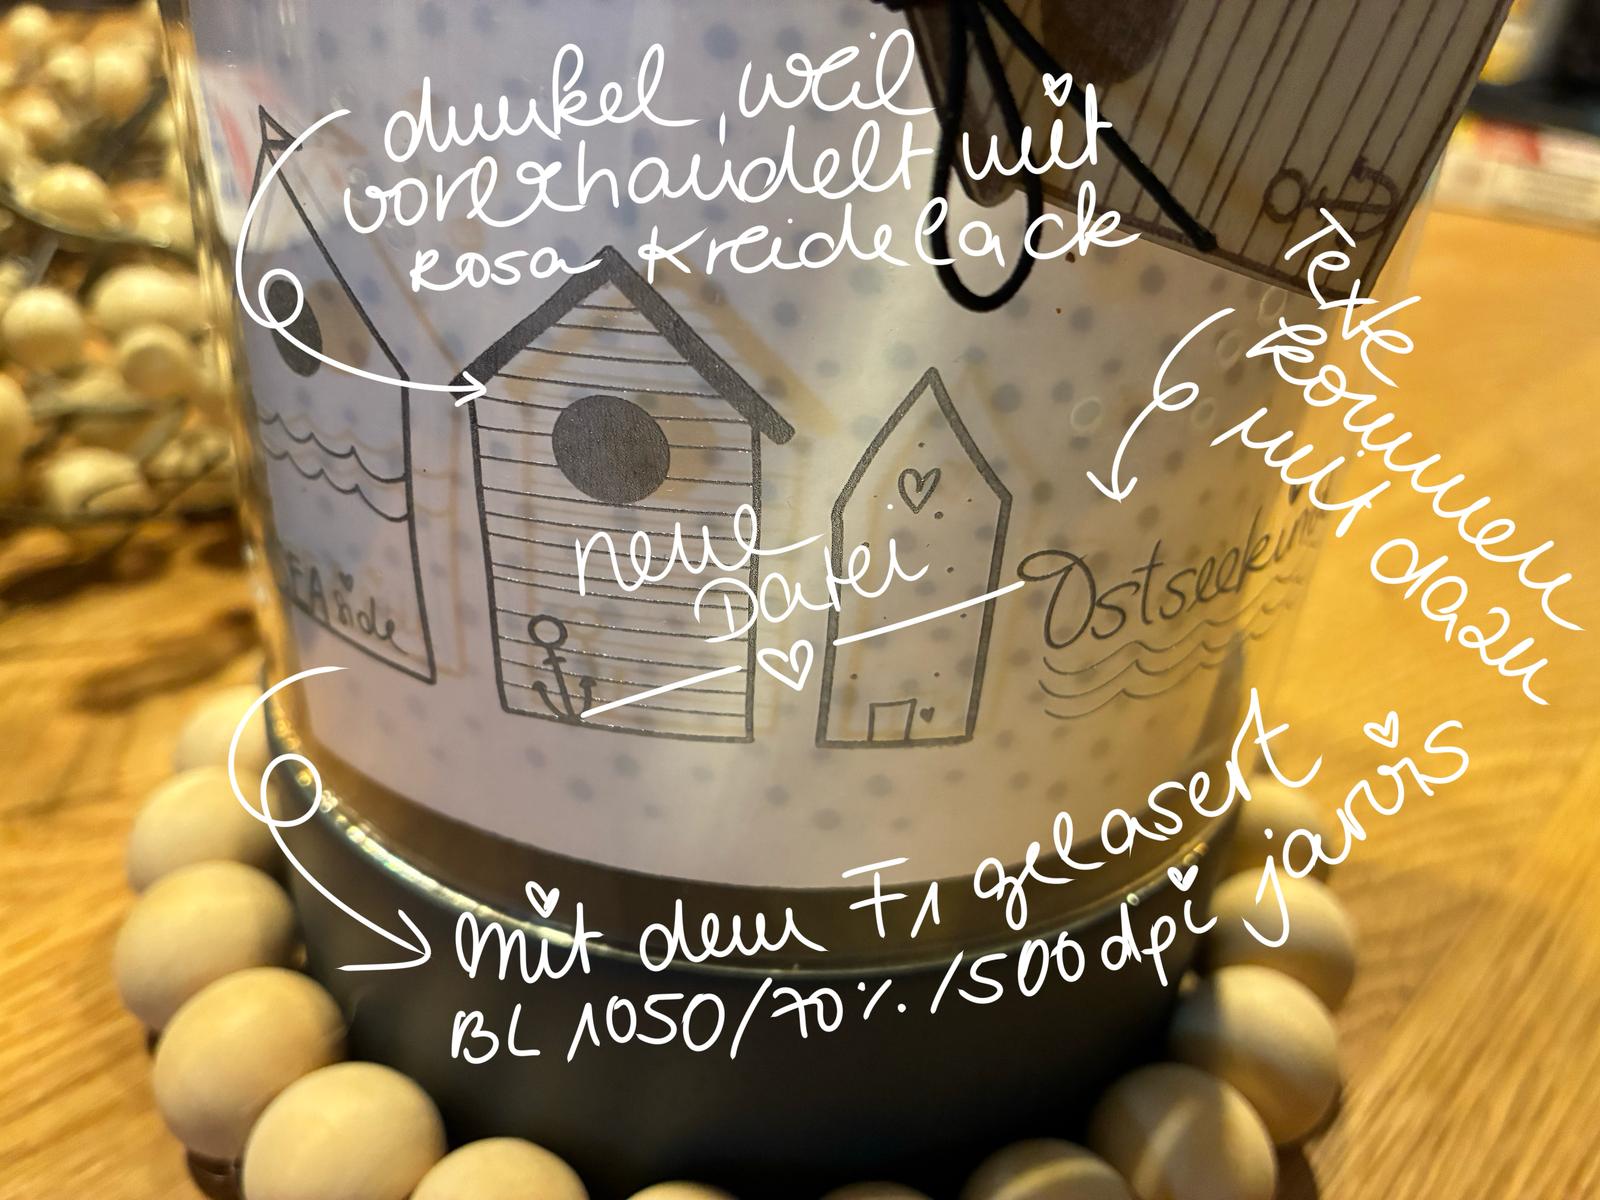 dunkel, weil
vorbehandelt mit
Rosa Kreidelack
Texte
kommen
mit dazu
neue
Datei
SEAside
Ostseekind
Mit dem F1 gelasert
BL 1050/70%/500dpi jarvis